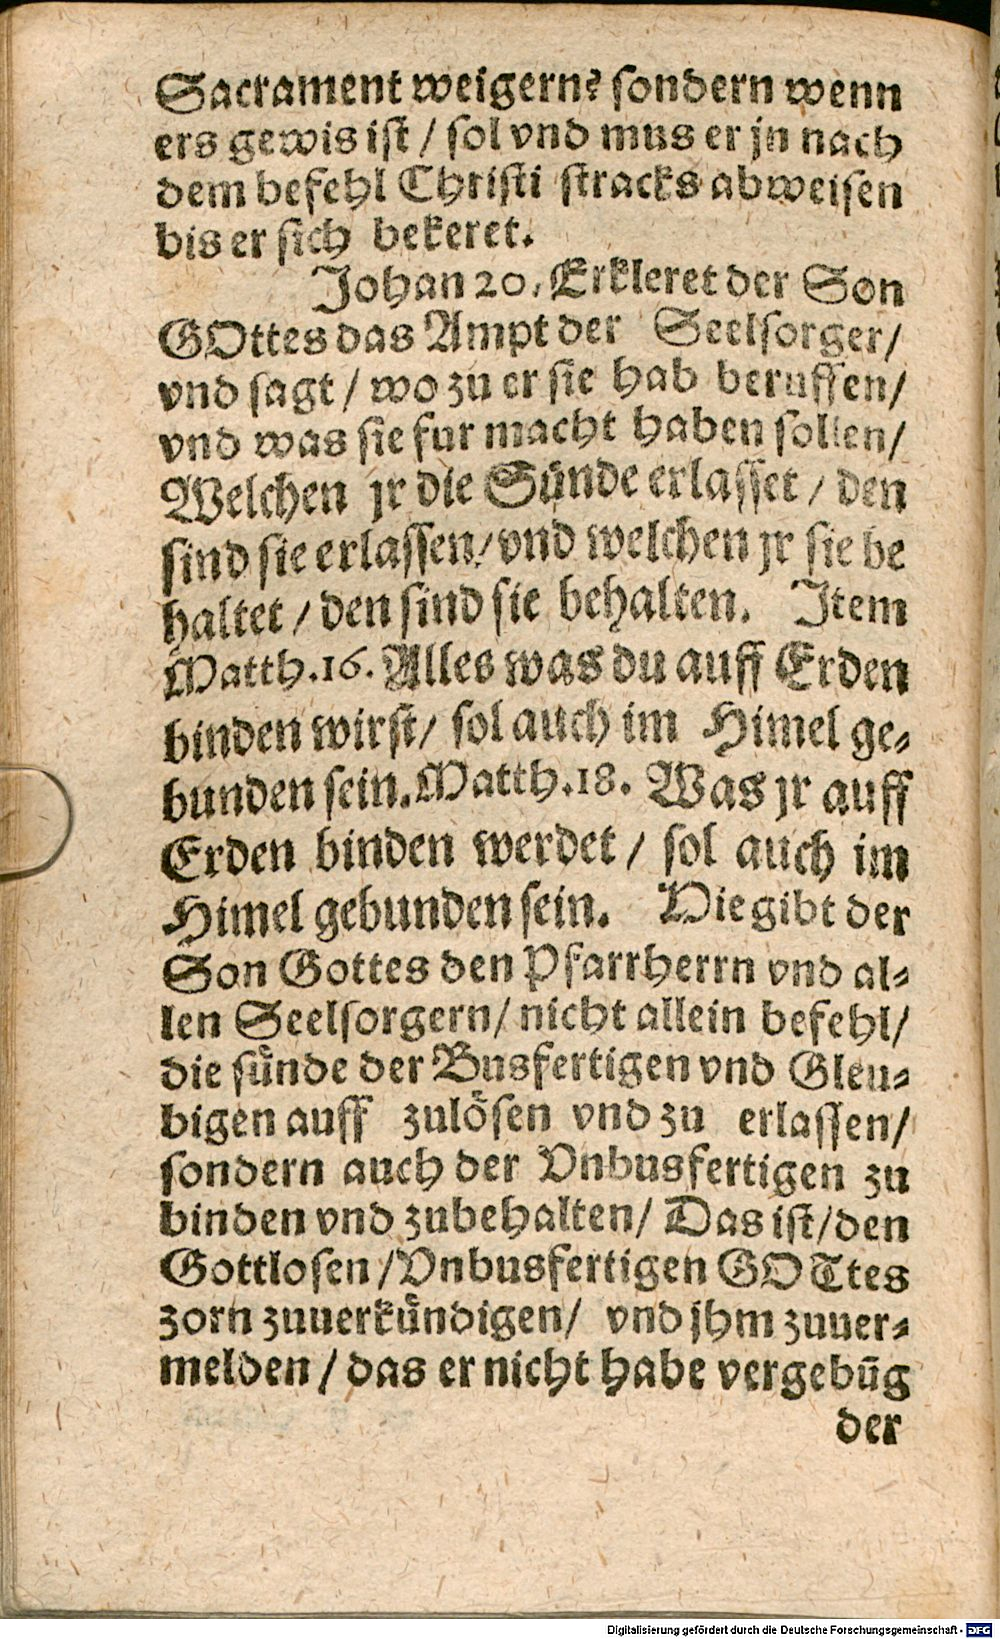 Sacrament weigern? sondern wenn
ers gewis ist / sol vnd mus er jn nach
dem befehl Christi stracks abweisen
bis er sich bekeret.
Johan 20. Erkleret der Son
GOttes das Ampt der Seelsorger/
vnd sagt / wo zu er sie hab beruffen/
vnd was sie fur macht haben sollen/
Welchen jr die Sünde erlasset / den
sind sie erlassen/ vnd welchen jr sie be
haltet / den sind sie behalten. Item
Matth.16. Alles was du auff Erden
binden wirst/ sol auch im Himel ge-
bunden sein. Matth.18. Was jr auff
Erden binden werdet / sol auch im
Himel gebunden sein. Hie gibt der
Son Gottes den Pfarrherrn vnd al-
len Seelsorgern/ nicht allein befehl/
die sünde der Busfertigen vnd Gleu-
bigen auff zulösen vnd zu erlassen/
sondern auch der Vnbusfertigen zu
binden vnd zubehalten/ Das ist/den
Gottlosen /Vnbusfertigen GOTtes
zorn zuuerkündigen/ vnd jhm zuuer-
melden / das er nicht habe vergebūg
der
Digitalisierung gefördert durch die Deutsche Forschungsgemeinschaft - DFG